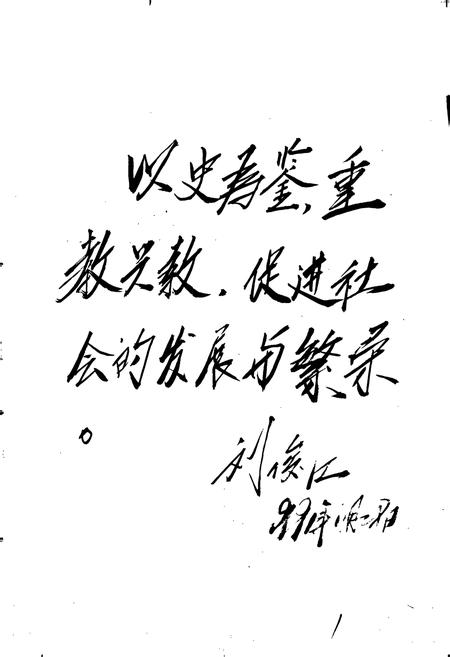 以史为鉴，重
教兴教，促进社
会的发展与繁荣
。
刘俊江
99年